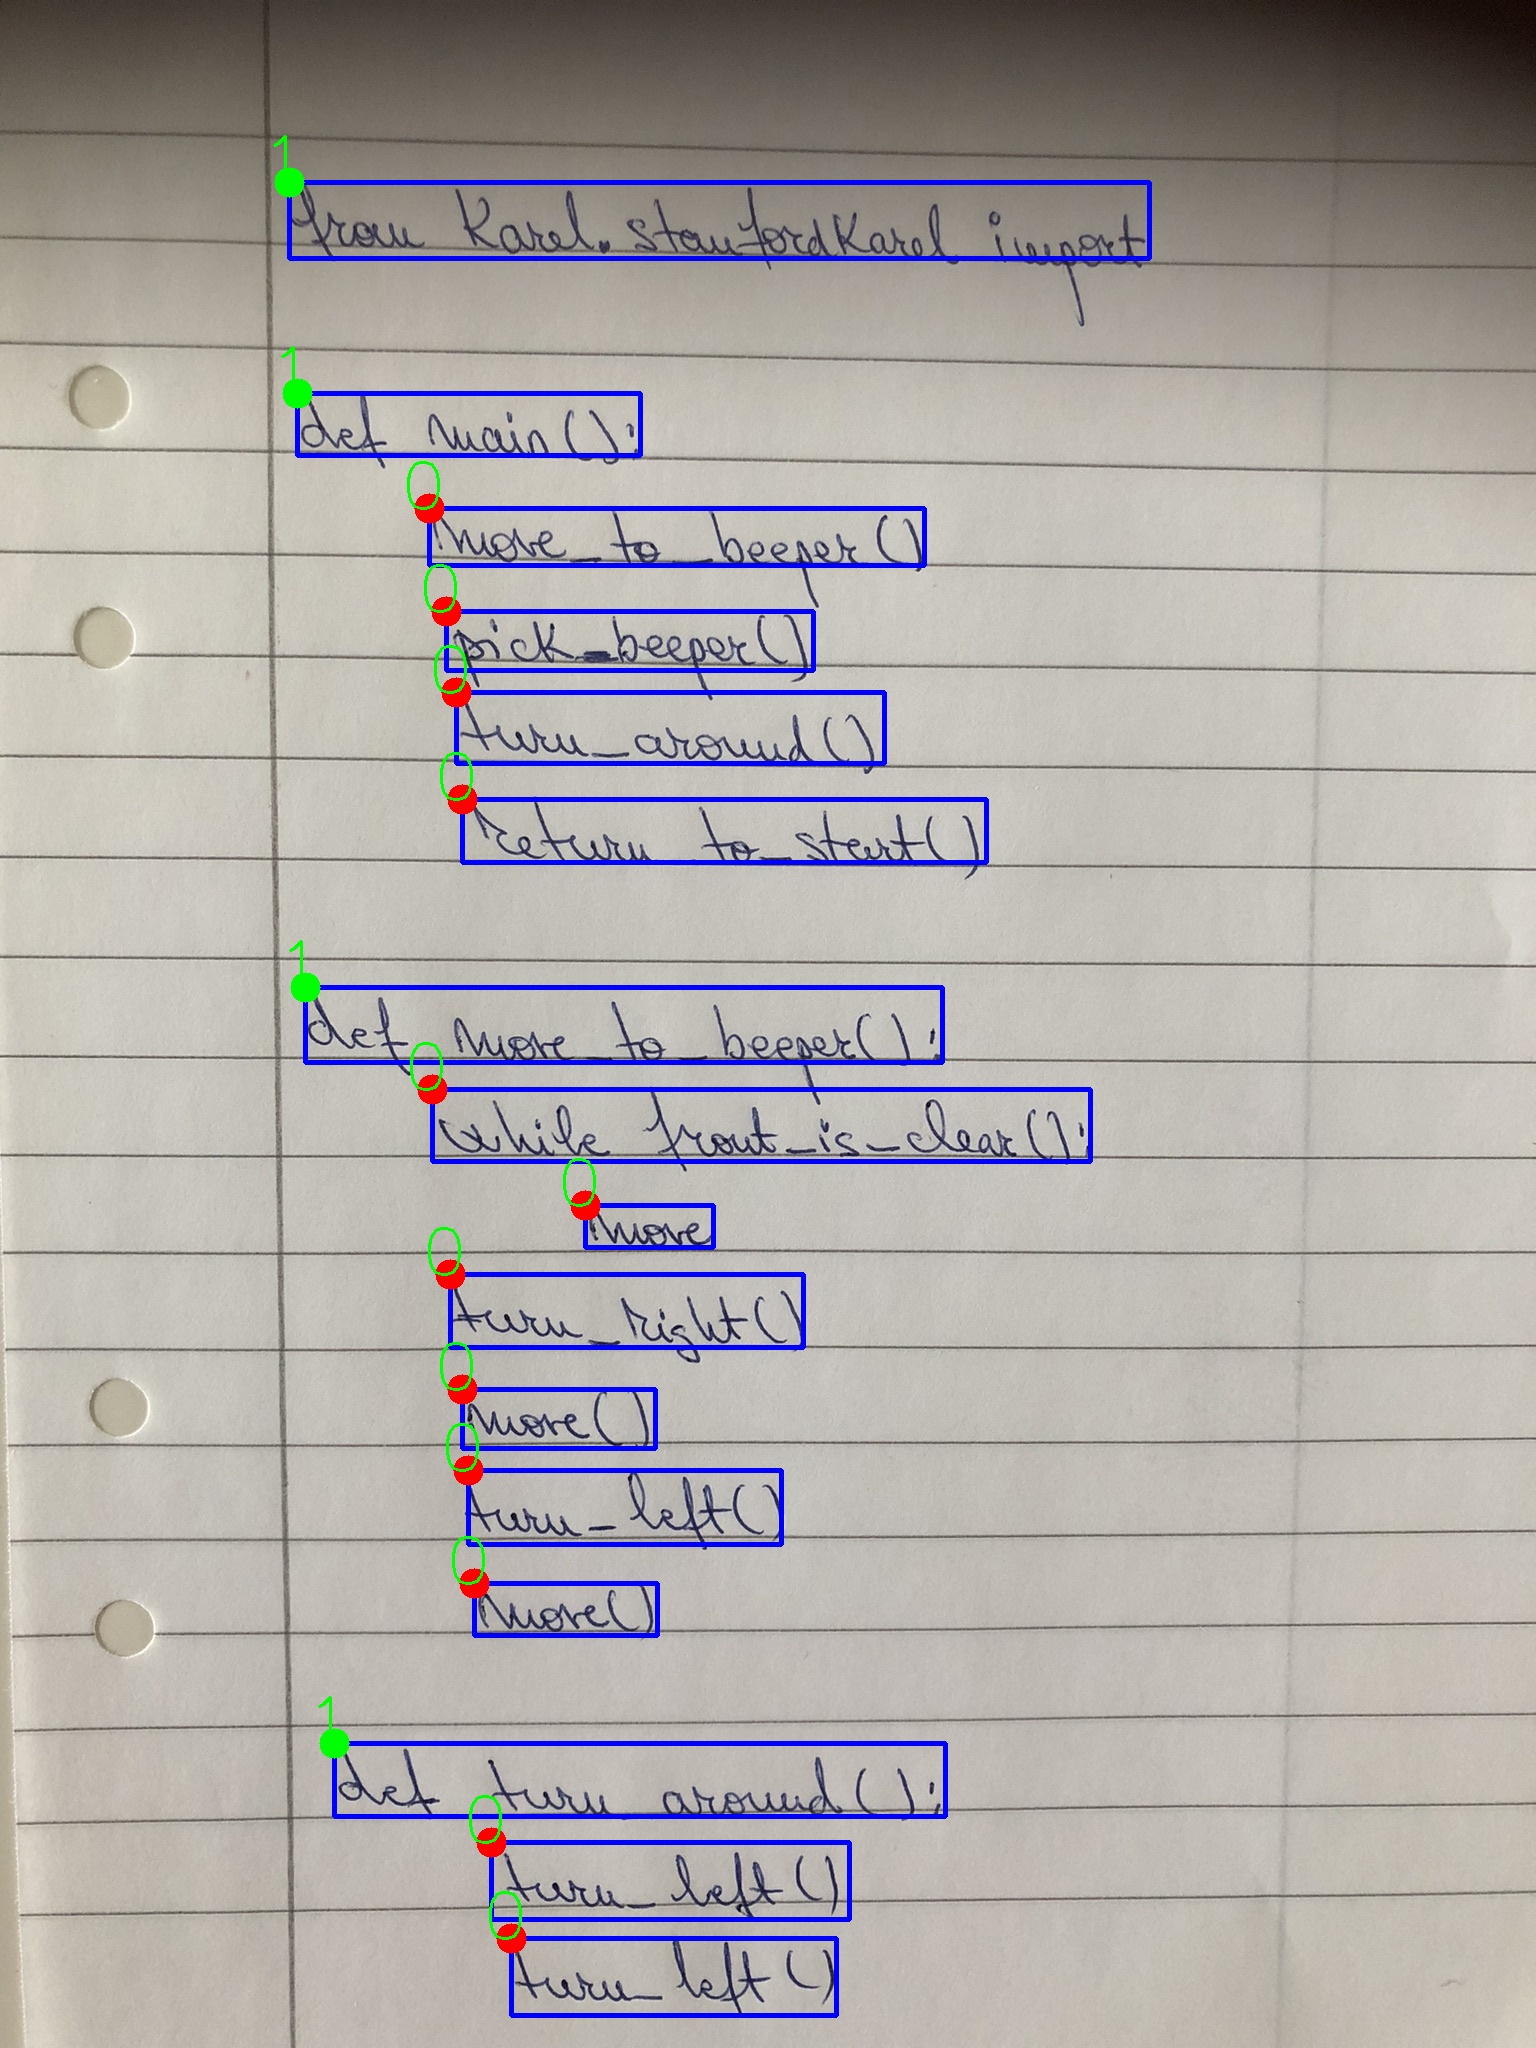 from Karel.stanfordKarel import
def main():
move_to_beeper()
pick_beeper()
turn_around()
return_to_start()
def move_to_beeper():
while front_is_clear():
move
turn_right()
move()
turn_left()
move()
def turn_around():
turn_left()
turn_left()
1
1
0
0
0
0
1
0
0
0
0
0
0
1
0
0